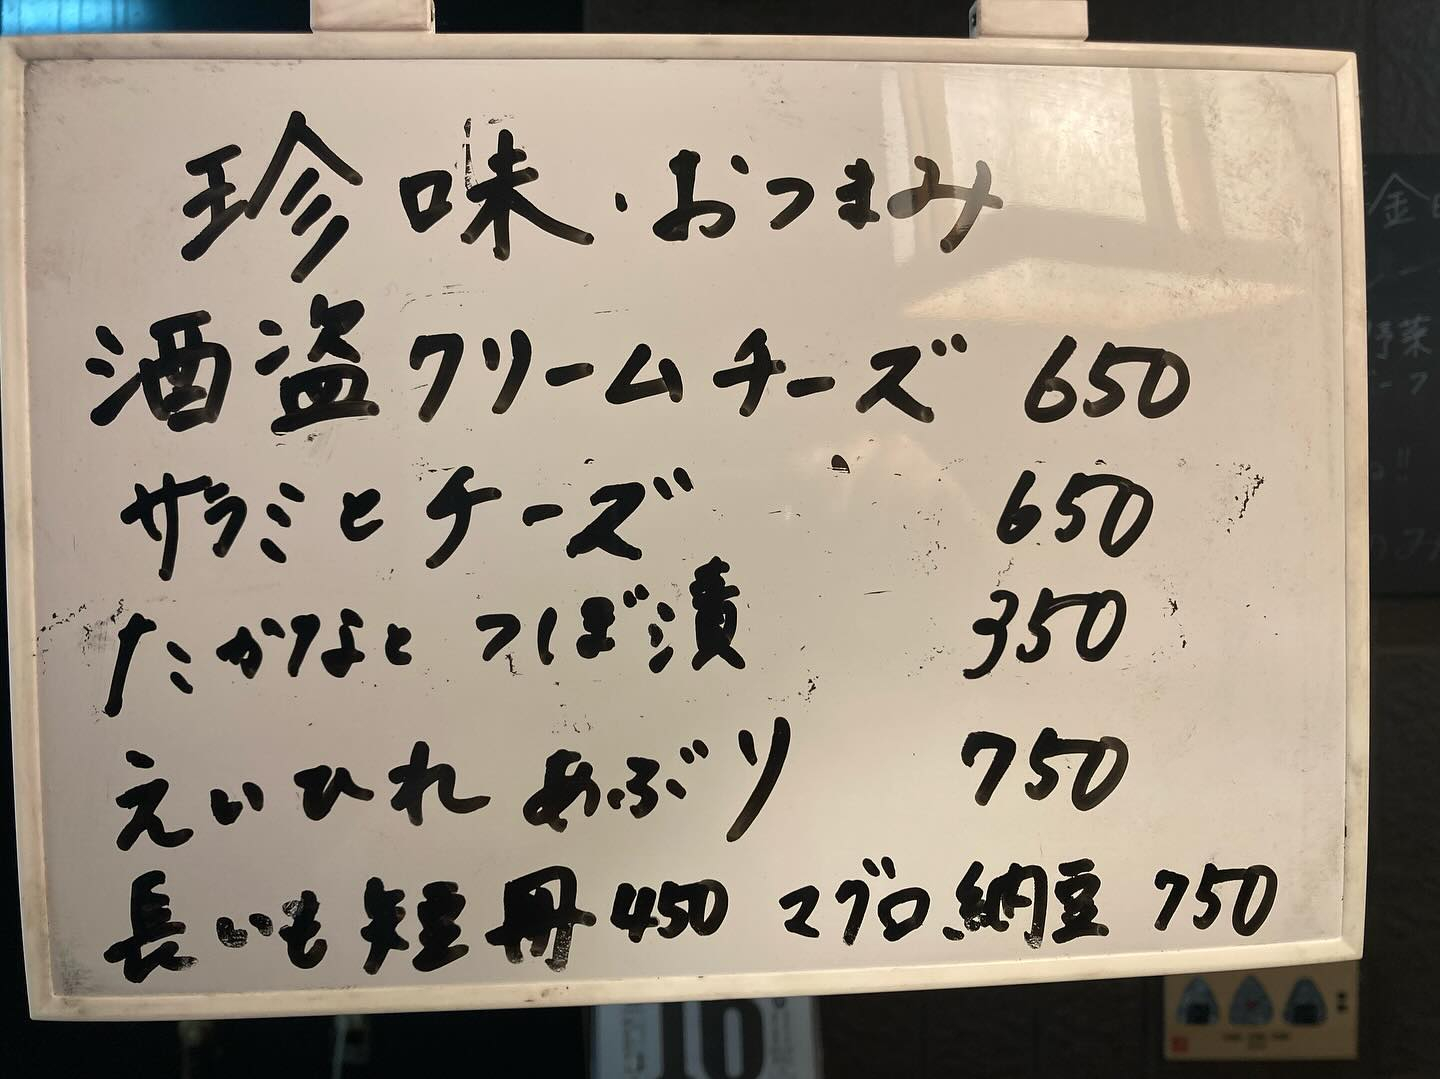 珍味・おつまみ
酒盗クリームチーズ 650
サラミとチーズ 650
たかなとつぼ漬 350
えいひれあぶり 750
長いも短冊 450 マグロ納豆 750
金
野菜
16